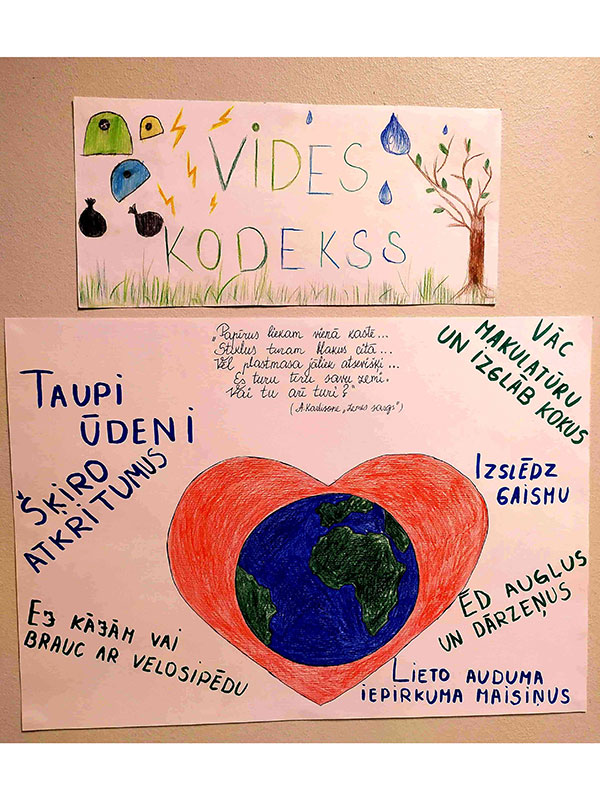 VIDES
KODEKSS
„Papīrus liekam vienā kastē...
Stiklus turam blakus citā...
Vēl plastmasa jāliek atsevišķi...
Es turu tīru savu zemi.
Vai tu arī turi?"
(A. Karlsone „Zemes sargs")
VĀC
MAKULATŪRU
UN IZGLĀB KOKUS
TAUPI
ŪDENI
ŠĶIRO
ATKRITUMUS
IZSLĒDZ
GAISMU
ĒD AUGĻUS
UN DĀRZEŅUS
EJ KĀJĀM VAI
BRAUC AR VELOSIPĒDU
LIETO AUDUMA
IEPIRKUMA MAISIŅUS